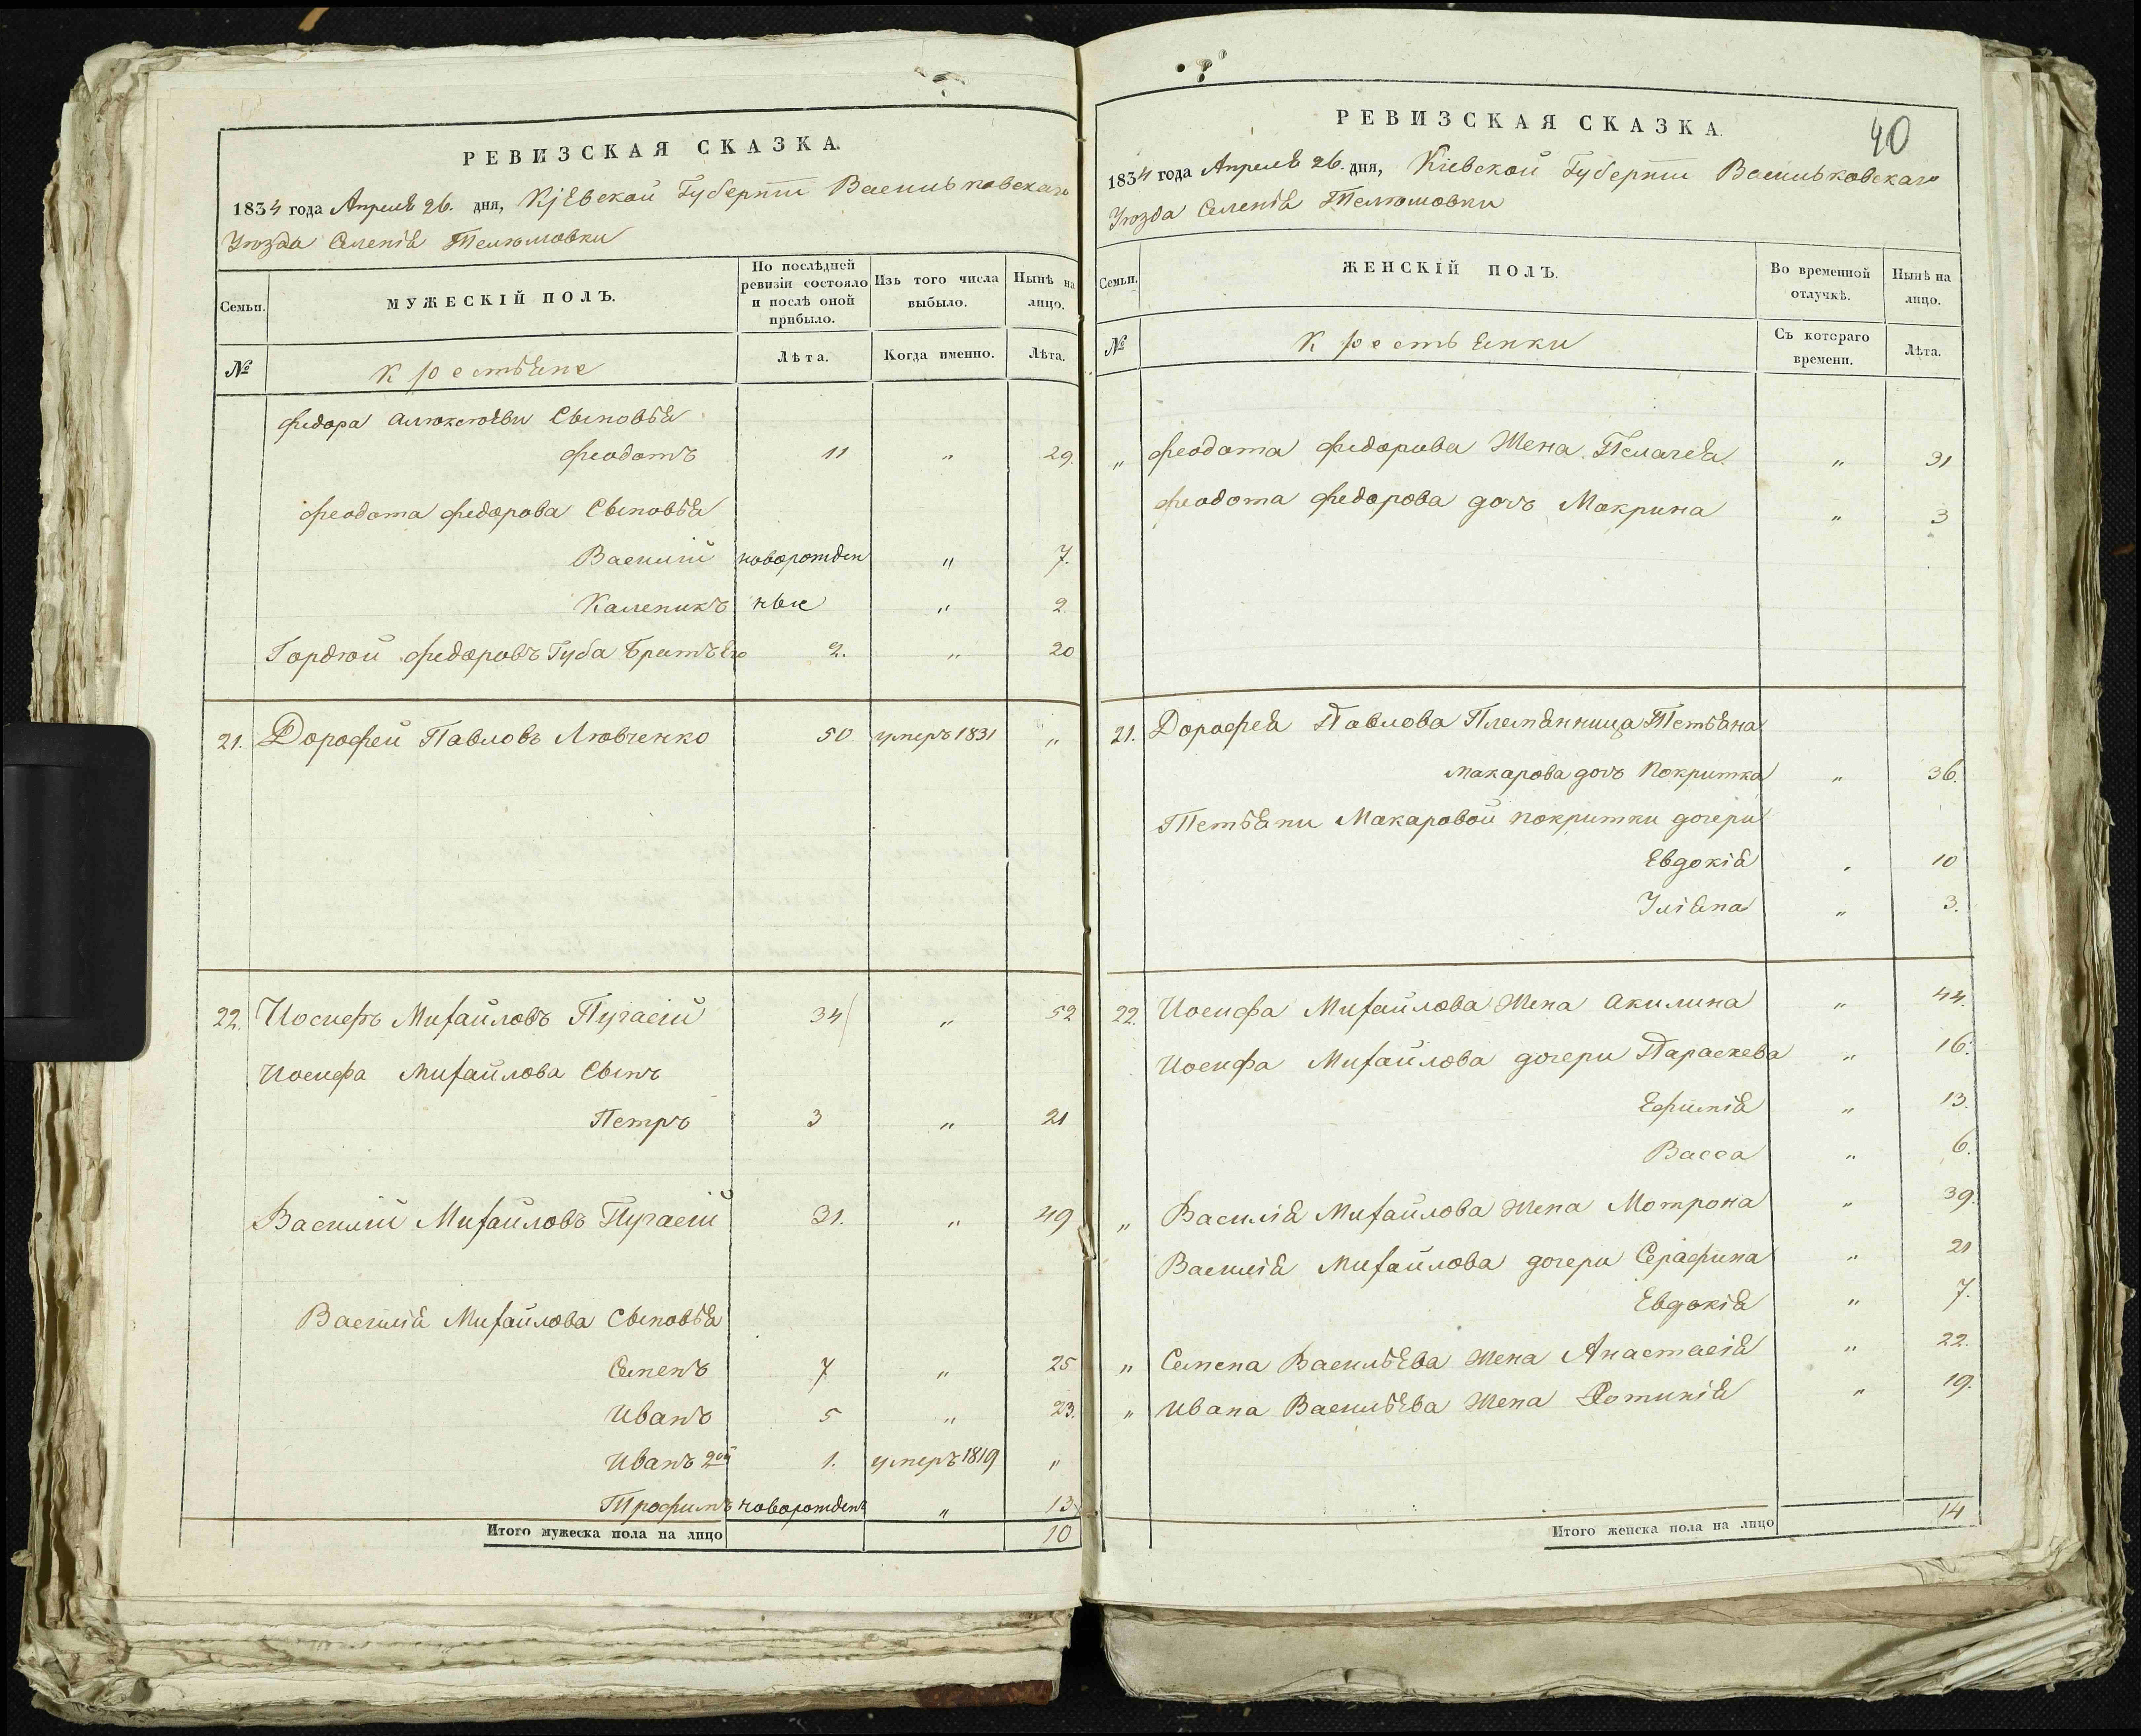 РЕВИЗСКАЯ СКАЗКА.
1834 года Апреля 26. дня, Кіевской Губерніи Васильковскаго
Уѣзда Селенія Телѣшовки
Семьи.
МУЖЕСКІЙ ПОЛЪ.
По послѣдней ревизіи состояло и послѣ оной прибыло.
Изъ того числа выбыло.
Нынѣ на лицо.
№
Крестьяне
Лѣта.
Когда именно.
Лѣта.
Федора Алѣксѣева Сыновья
Феодотъ 11 " 29.
Феодота Федорова Сыновья
Василій новорожден " 7.
Каленикъ ные " 2.
Гордѣй Федоровъ Губа Братъ Его 2. " 20
21. Дорофей Павловъ Любченко 50 умеръ 1831 "
22. Иосифъ Михайловъ 34 " 52
Иосифа Михайлова Сынъ
Петръ 3 " 21
Василий Михайловъ 31. " 49
Василія Михайлова Сыновья
Семенъ 7 " 25
Иванъ 5 " 23.
Иванъ 2ой 1. умеръ 1819 "
Трофимъ новорожденъ " 13
Итого мужеска пола на лицо 10
40
РЕВИЗСКАЯ СКАЗКА.
1834 года Апреля 26. дня, Кіевской Губерніи Васильковскаго
Уѣзда Селенія Телѣшовки
Семьи.
ЖЕНСКІЙ ПОЛЪ.
Во временной отлучкѣ.
Нынѣ на лицо.
№
Крестьянки
Съ котораго времени.
Лѣта.
" Феодота Федорова Жена Пелагея " 31
Феодота Федорова дочь Макрина " 3
21. Дорофея Павлова Племянница Тетьяна
Макарова дочь Покритка " 36.
Тетьяни Макаровой покритки дочери
Евдокія " 10
Уліяна " 3.
22. Иосифа Михайлова Жена Акилина " 44.
Иосифа Михайлова дочери Параскева " 16.
Ефимія " 13.
Васса " 6.
" Василія Михайлова Жена Мотрона " 39.
Василія Михайлова дочери Серафина " 21
Евдокія " 7.
" Семена Васильева Жена Анастасія " 22.
" Ивана Васильева Жена Фотинія " 19.
Итого женска пола на лицо 14